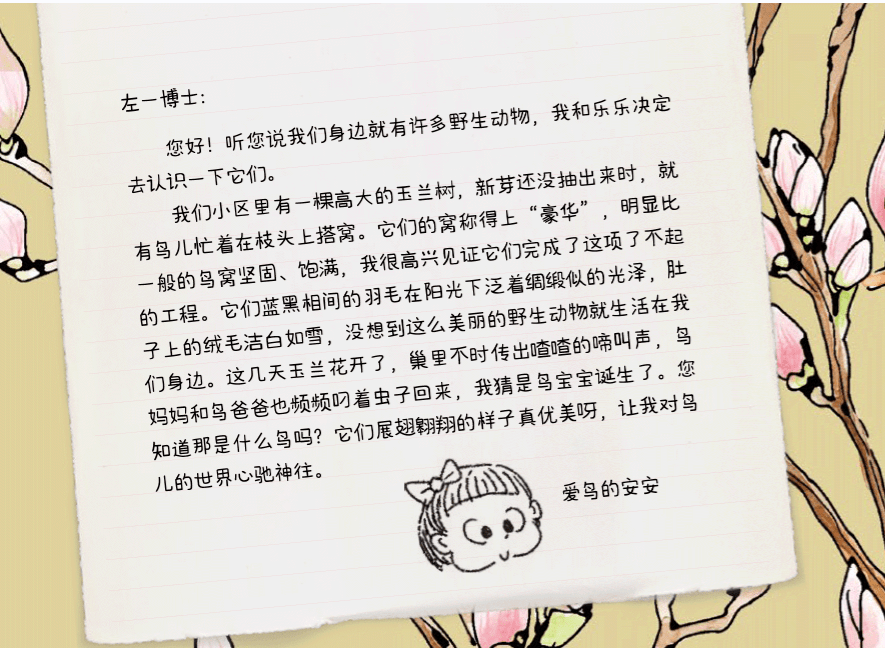 左一博士：
您好！听您说我们身边就有许多野生动物，我和乐乐决定
去认识一下它们。
我们小区里有一棵高大的玉兰树，新芽还没抽出来时，就
有鸟儿忙着在枝头上搭窝。它们的窝称得上“豪华”，明显比
一般的鸟窝坚固、饱满，我很高兴见证它们完成了这项了不起
的工程。它们蓝黑相间的羽毛在阳光下泛着绸缎似的光泽，肚
子上的绒毛洁白如雪，没想到这么美丽的野生动物就生活在我
们身边。这几天玉兰花开了，巢里不时传出喳喳的啼叫声，鸟
妈妈和鸟爸爸也频频叼着虫子回来，我猜是鸟宝宝诞生了。您
知道那是什么鸟吗？它们展翅翱翔的样子真优美呀，让我对鸟
儿的世界心驰神往。
爱鸟的安安